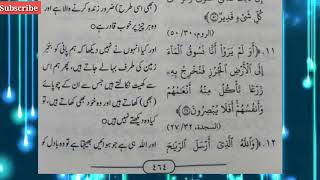 Subscribe
كُلِّ شَيْءٍ قَدِيرٌ﴾
(الروم، ٣٠/ ٥٠)
١١. ﴿أَوَ لَمْ يَرَوْا أَنَّا نَسُوقُ الْمَاءَ
إِلَى الْأَرْضِ الْجُرُزِ فَنُخْرِجُ بِهِ
زَرْعًا تَأْكُلُ مِنْهُ أَنْعَامُهُمْ
وَأَنْفُسُهُمْ أَفَلَا يُبْصِرُونَ﴾
(السجدة، ٣٢/ ٢٧)
١٢. ﴿وَاللَّهُ الَّذِي أَرْسَلَ الرِّيَاحَ
(بھی اسی طرح) ضرور زندہ کرنے والا ہے اور
وہ ہر چیز پر خوب قادر ہے
اور کیا انہوں نے نہیں دیکھا کہ ہم پانی کو بنجر
زمین کی طرف بہالے جاتے ہیں، پھر ہم اس
سے کھیت نکالتے ہیں جس سے ان کے چوپائے
(بھی) کھاتے ہیں اور وہ خود بھی کھاتے ہیں، تو
کیا وہ دیکھتے نہیں ہیں
اور اللہ ہی ہے جو ہوائیں بھیجتا ہے تو وہ بادل کو
٤٦٤